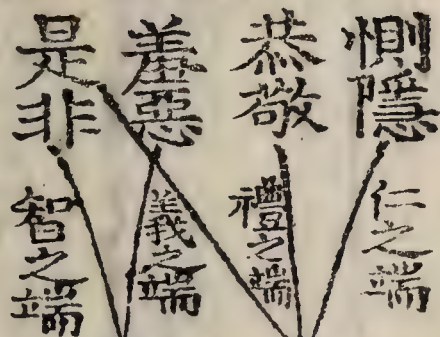 惻隱
仁之端
恭敬
禮之端
羞惡
義之端
是非
智之端